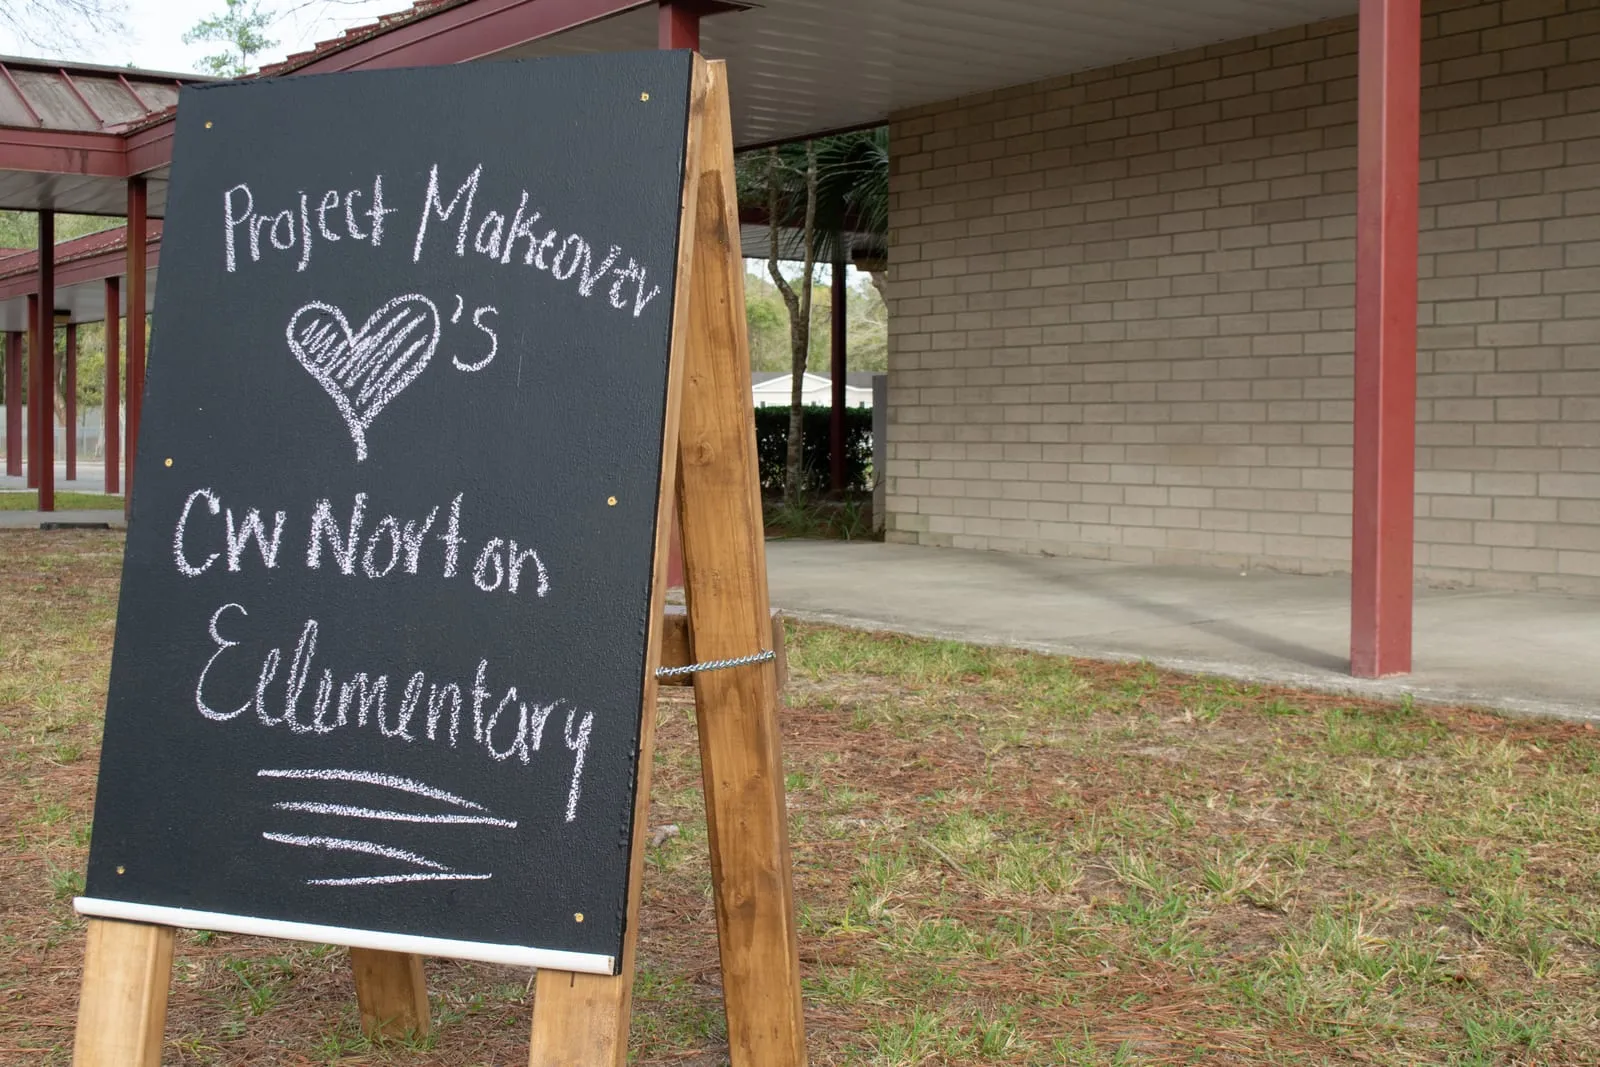 Project Makeover
❤'s
CW Norton
Eellementary